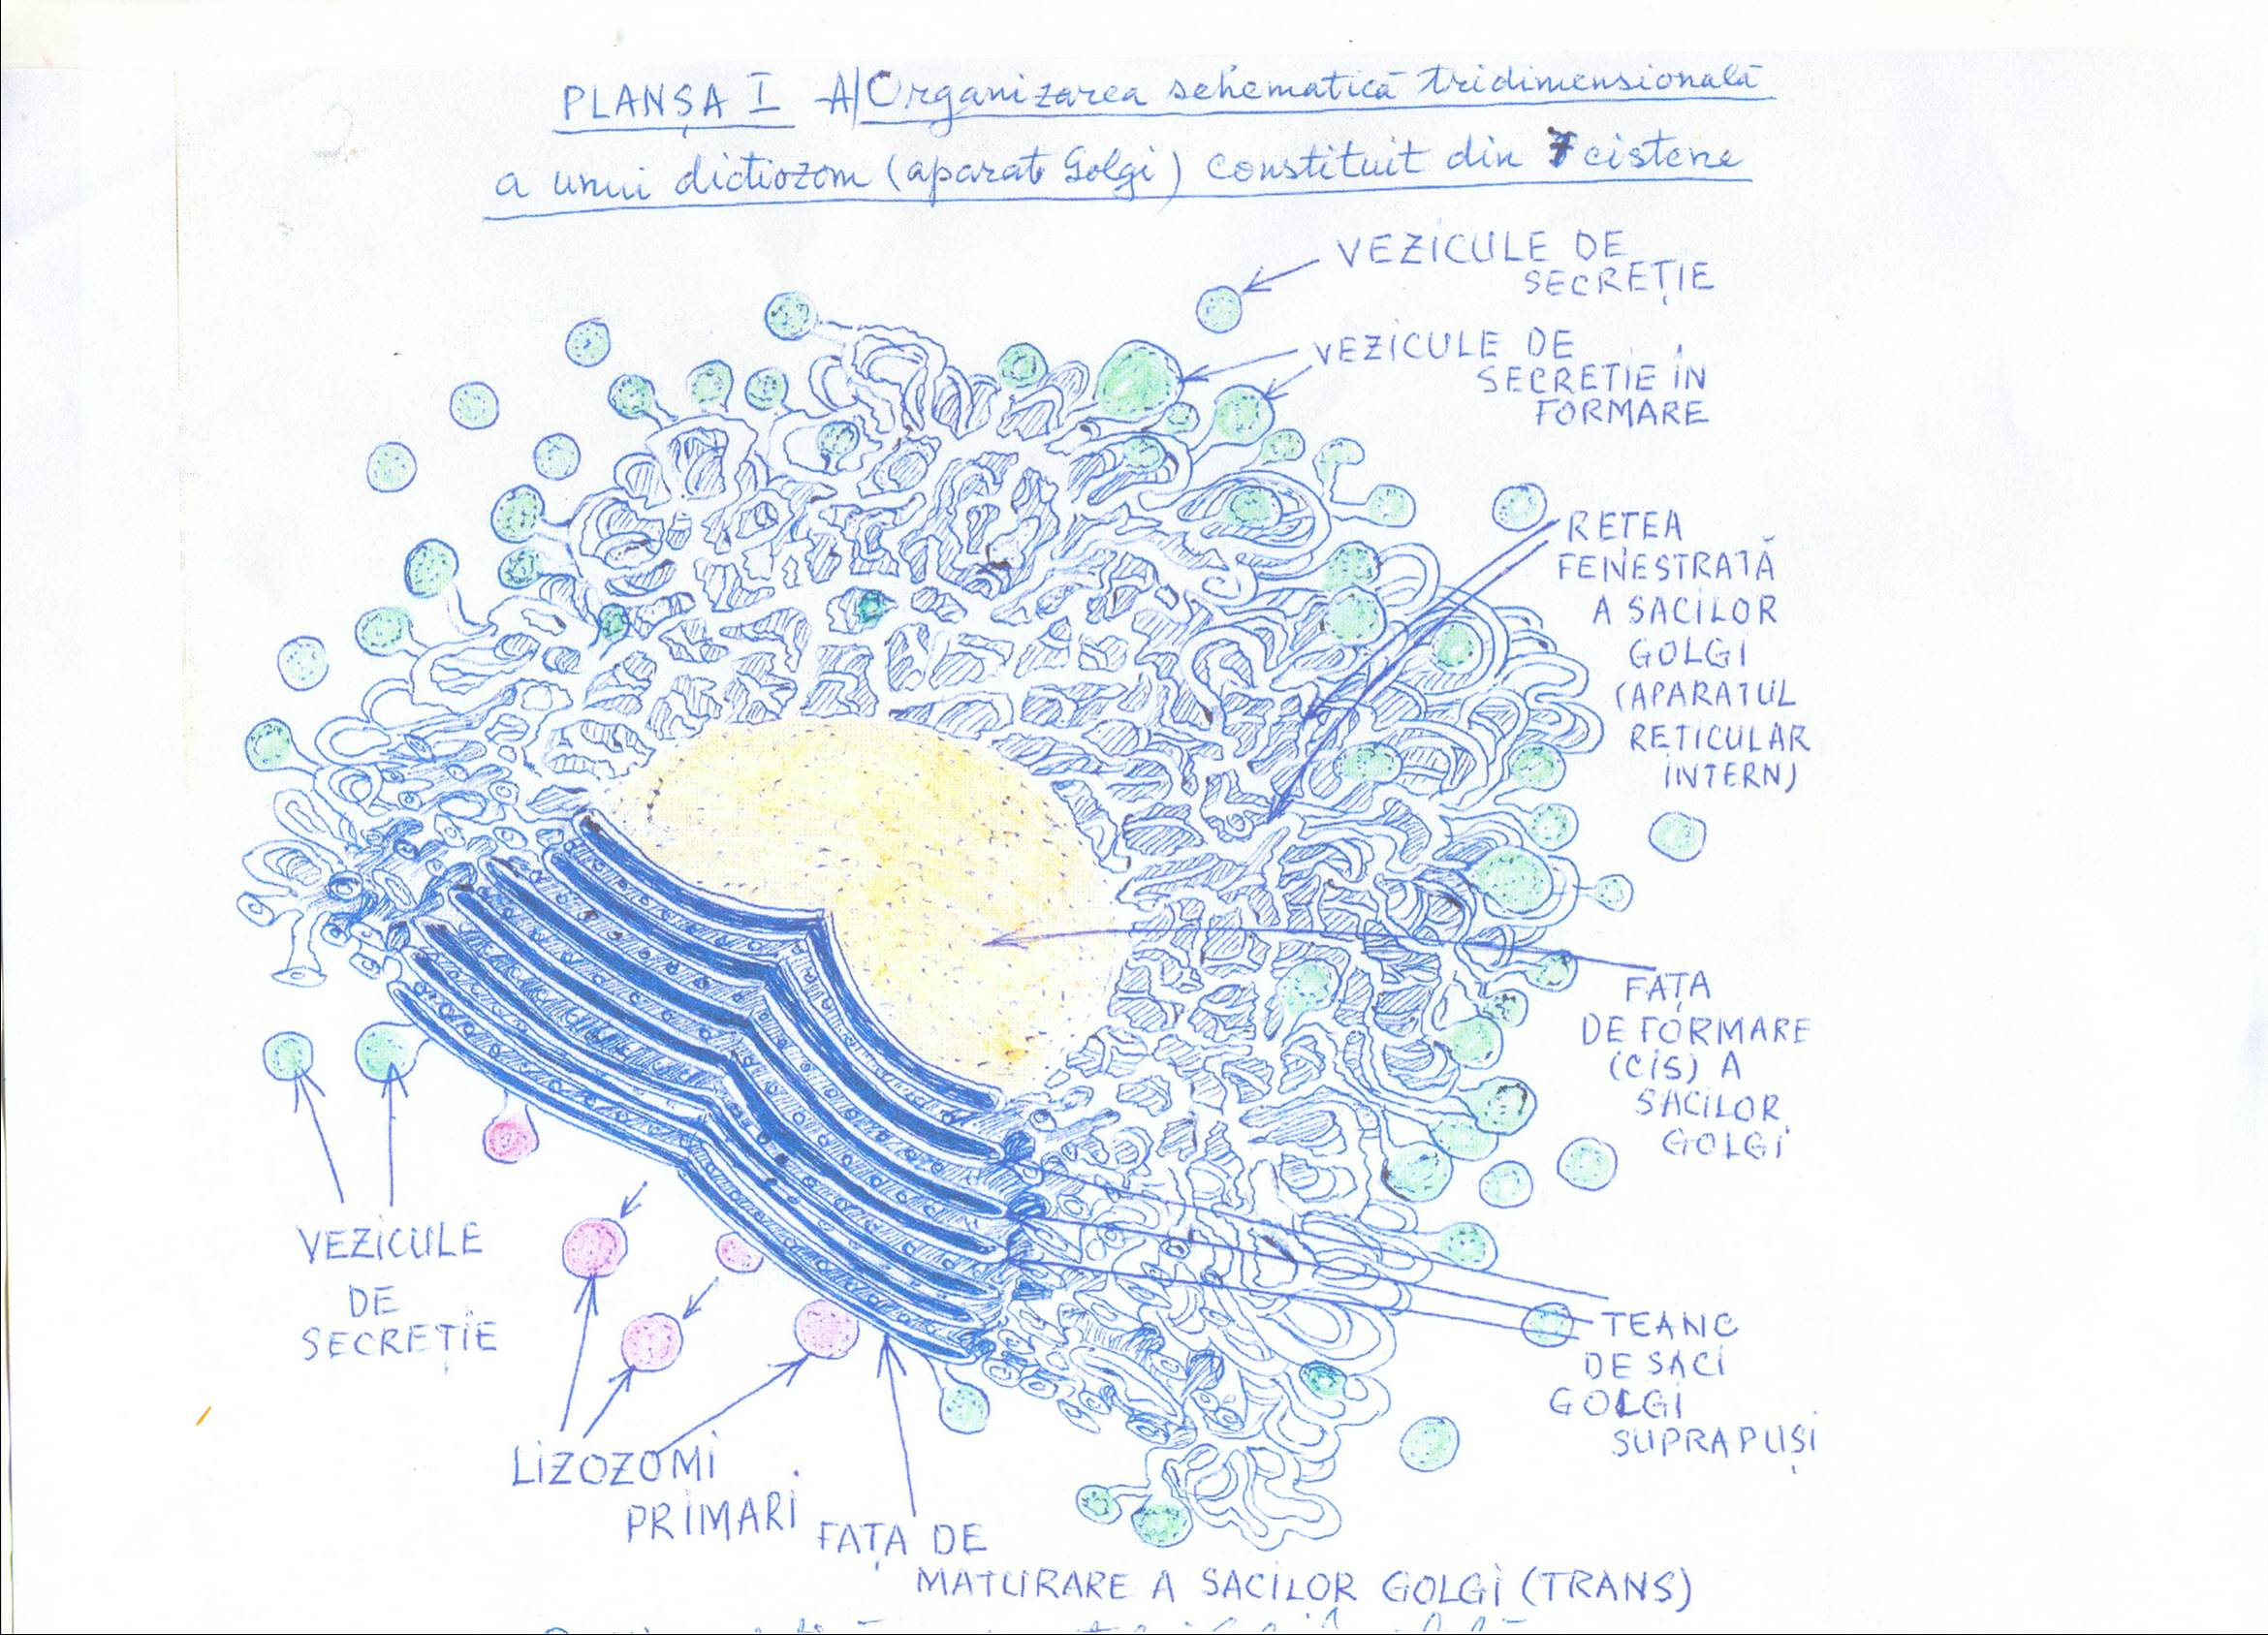 PLANȘA I A/ Organizarea schematică tridimensională
a unui dictiozom (aparat Golgi) constituit din 7 cisterne
VEZICULE DE
SECREȚIE
VEZICULE DE
SECRETIE IN
FORMARE
RETEA
FENESTRATĂ
A SACILOR
GOLGI
(APARATUL
RETICULAR
INTERN)
FAȚA
DE FORMARE
(CIS) A
SACILOR
GOLGI
TEANC
DE SACI
GOLGI
SUPRAPUȘI
VEZICULE
DE
SECREȚIE
LIZOZOMI
PRIMARI
FAȚA DE
MATURARE A SACILOR GOLGI (TRANS)